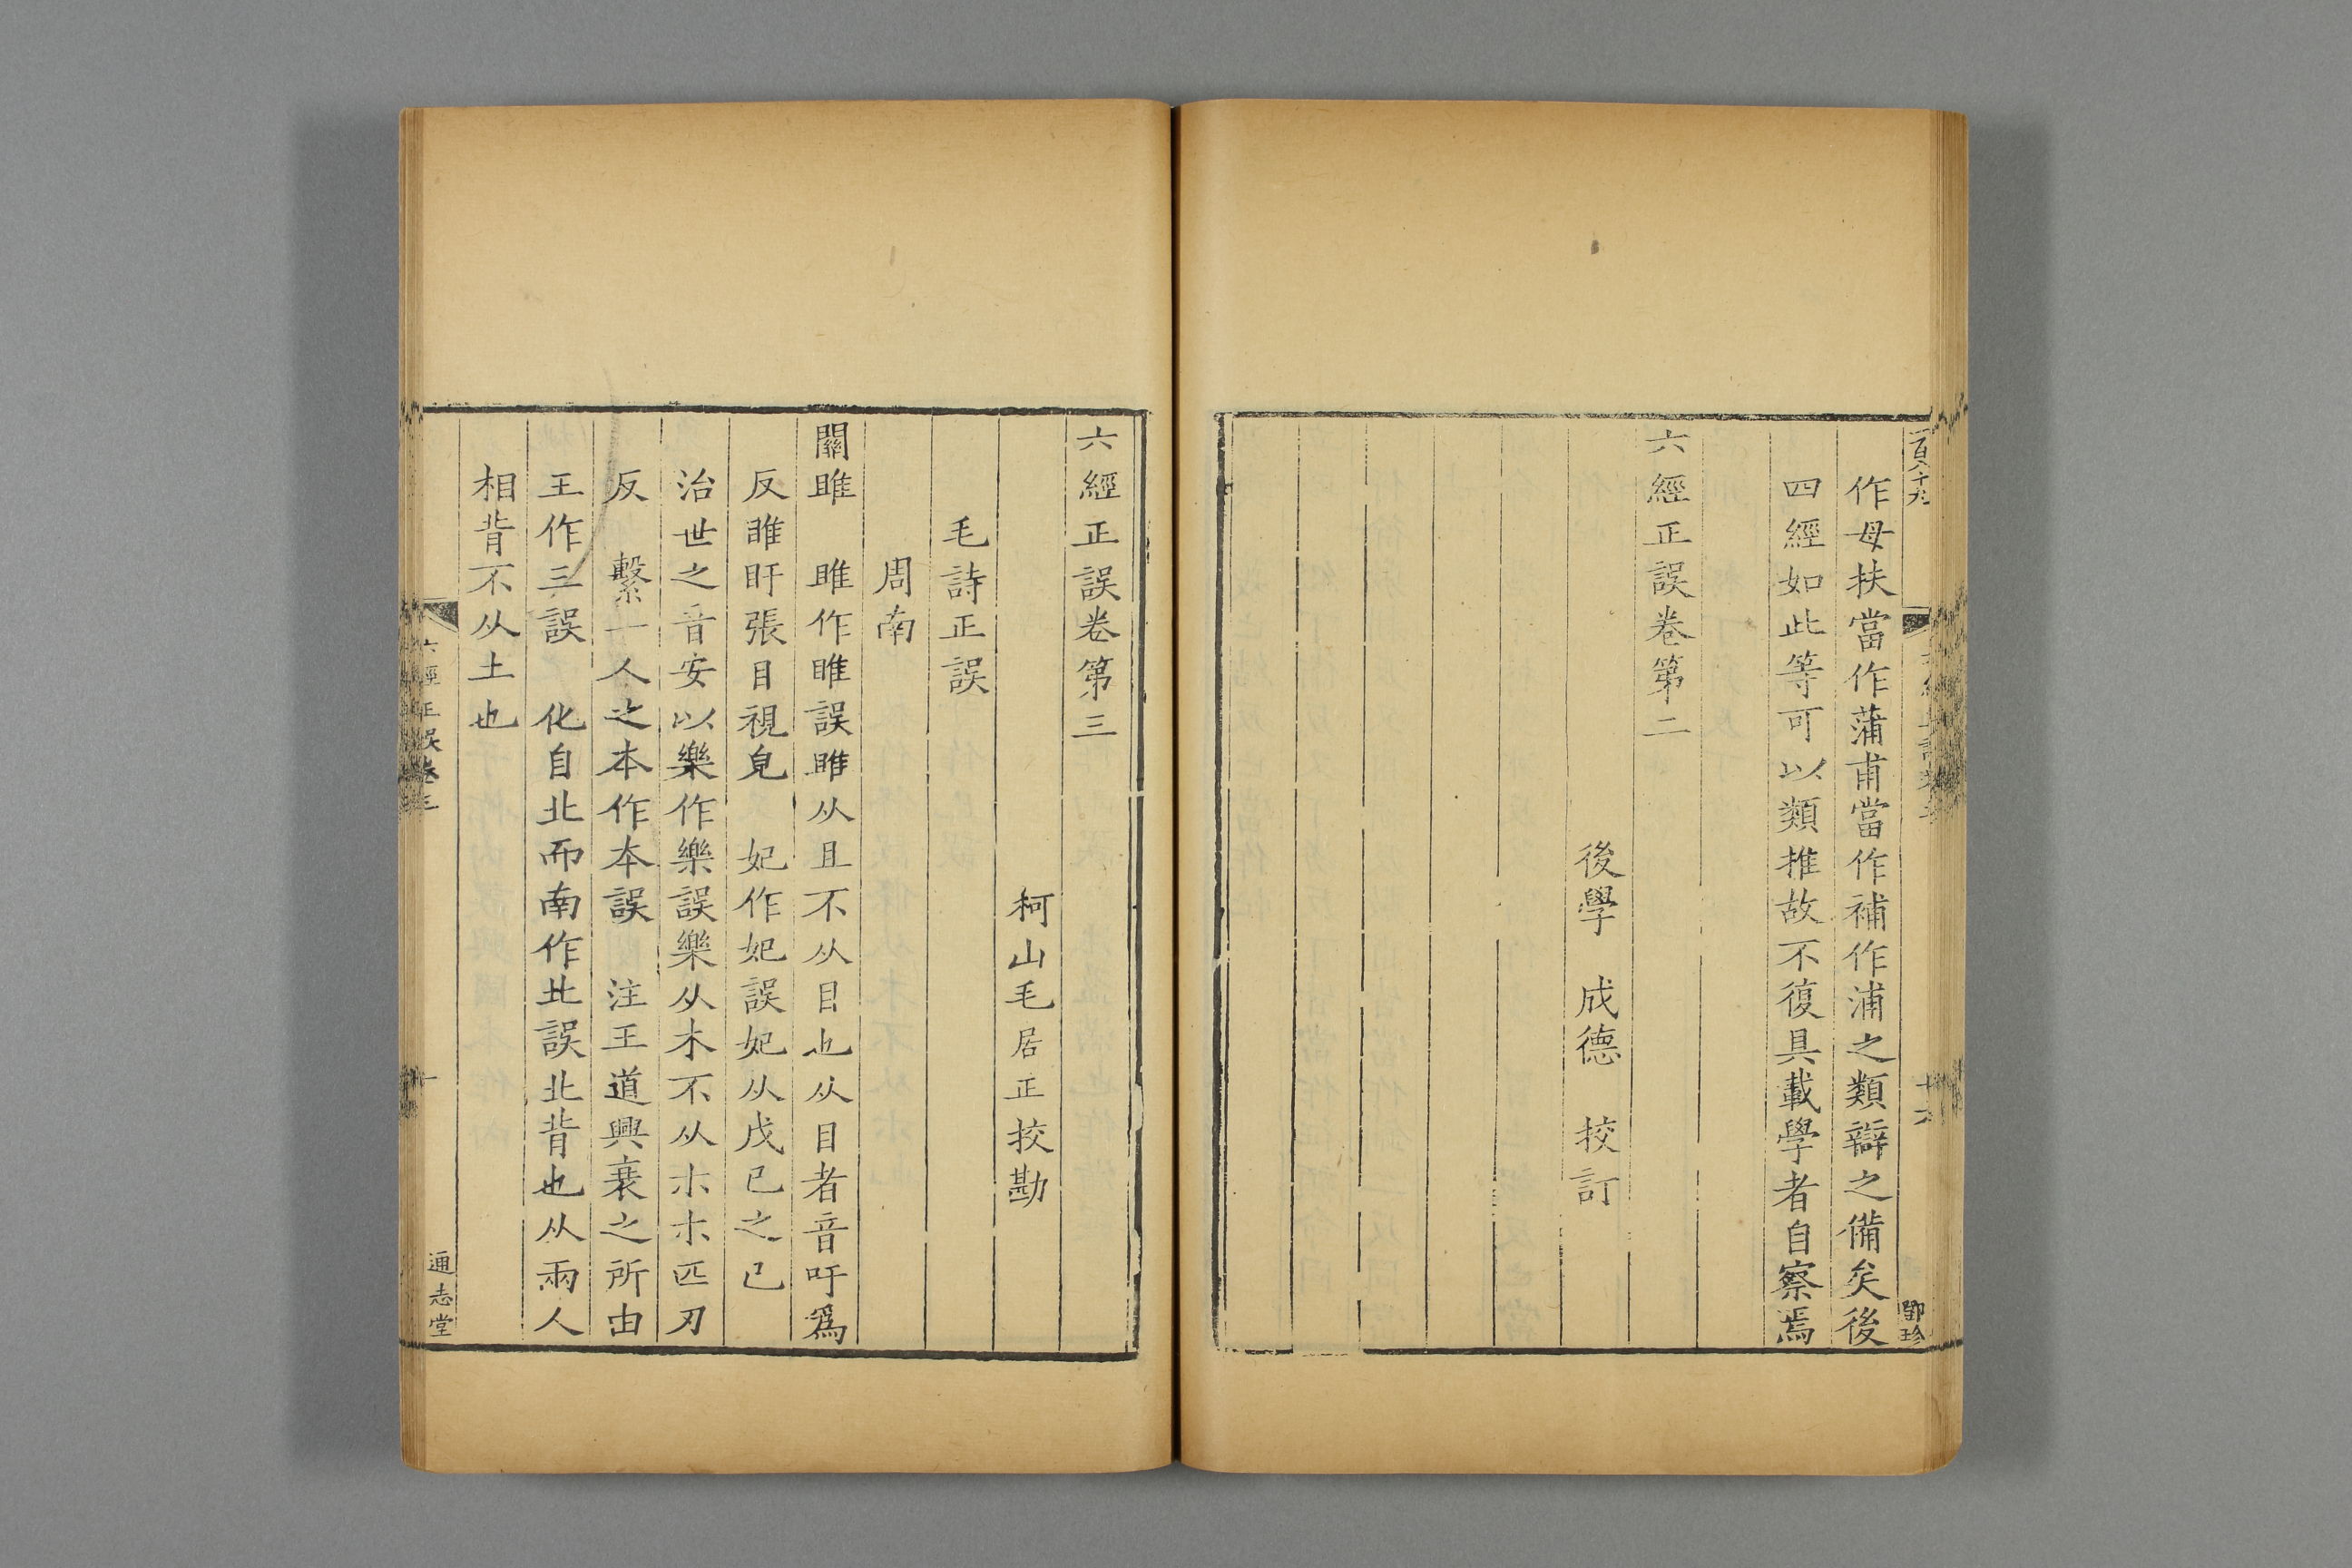 作母扶當作蒲甫當作補作浦之類辯之備矣後
四經如此等可以類推故不復具載學者自察焉
六經正誤卷第二
後學 成德 挍訂
鄧珍
六經正誤卷第三
柯山毛居正挍勘
毛詩正誤
周南
關雎 雎作睢誤雎从且不从目也从目者音吁爲
反睢盱張目視皃 妃作妃誤妃从戊己之己
治世之音安以樂作樂誤樂从木不从朩朩匹刃
反 繫一人之本作夲誤 注王道興衰之所由
王作三誤 化自北而南作北誤北背也从兩人
相背不从土也
六經正誤卷三
一
通志堂